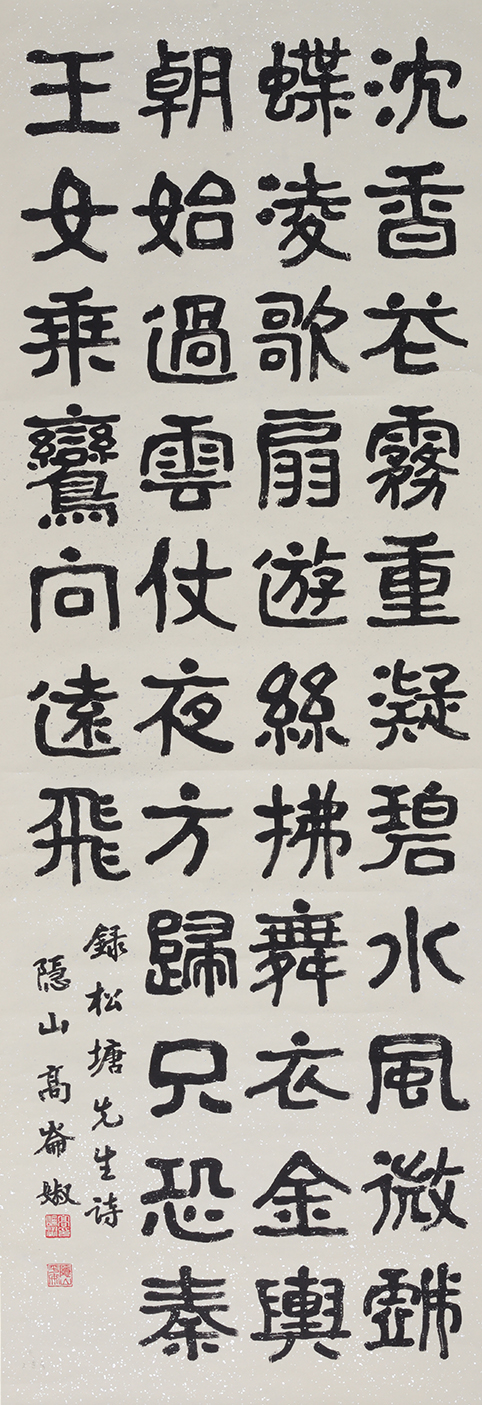 沈香花霧重凝碧水風微戲
蝶凌歌扇遊絲拂舞衣金輿
朝始過雲仗夜方歸只恐秦
王女乘鸞向遠飛
録松塘先生詩
隠山高崙婌